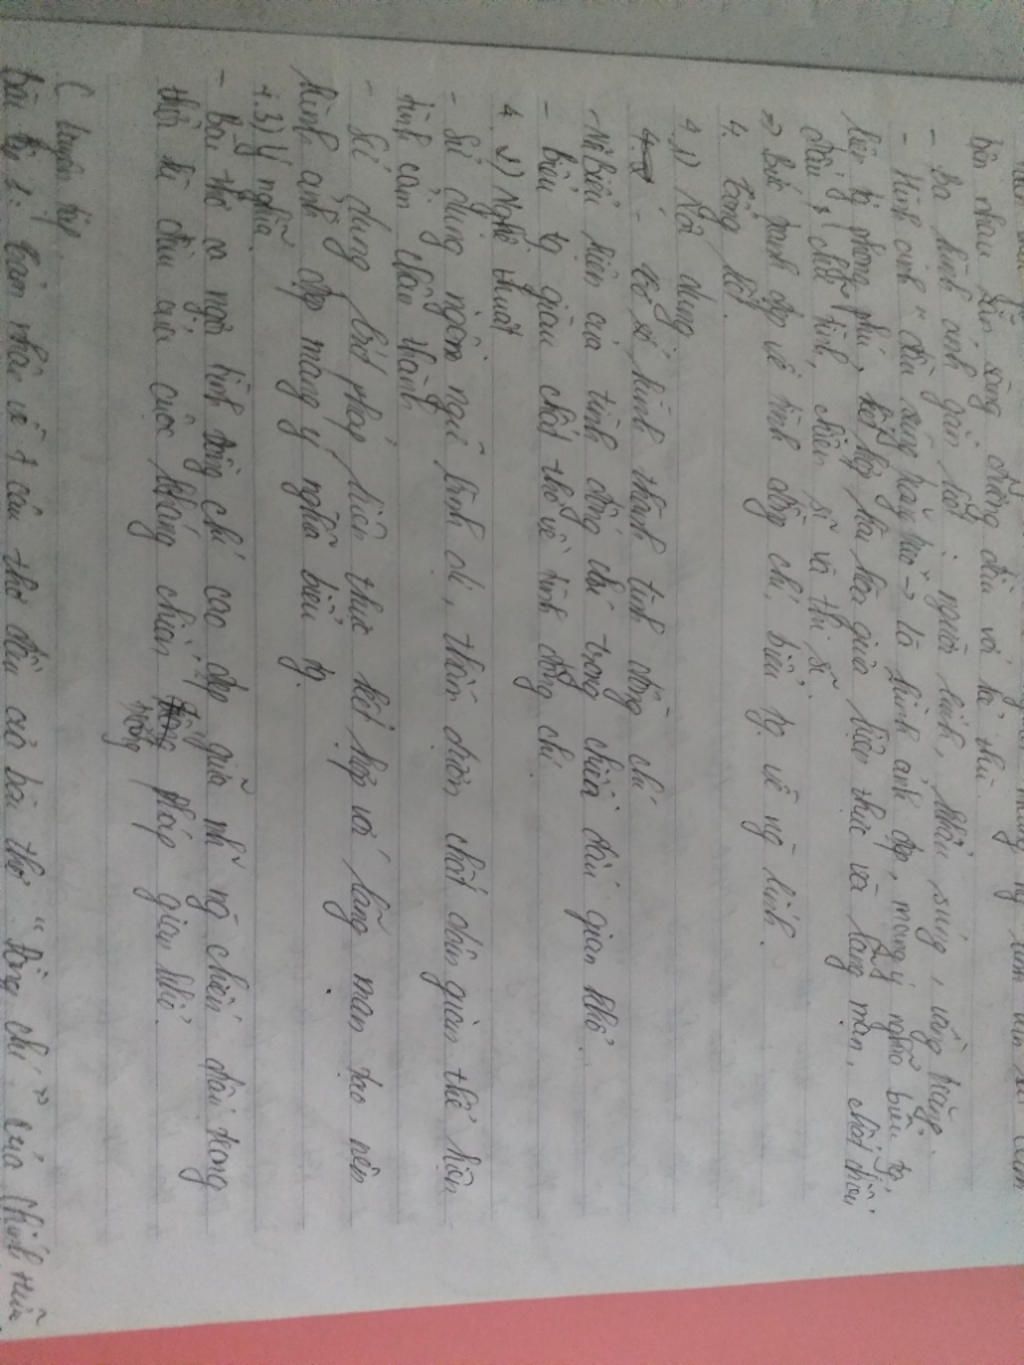 bên nhau sẵn sàng chờ đợi với kẻ thù.
- Ba hình ảnh gắn kết: người lính, khẩu súng, vầng trăng.
- Hình ảnh "đầu súng trăng treo" → là hình ảnh đẹp, mang ý nghĩa biểu tg,
liên tg phong phú, kết hợp hài hòa giữa hiện thực và lãng mạn, chất chiến
đấu, chất tình, chiến sĩ và thi sĩ.
=> Bức tranh đẹp về tình đồng chí, biểu tg về ng lính.
4. Tổng kết.
4.1) Nội dung
- Cơ sở hình thành tình đồng chí
- Biểu hiện của tình đồng chí trong chiến đấu gian khổ.
- Biểu tg giàu chất thơ về tình đồng chí.
4.2) Nghệ thuật
- Sử dụng ngôn ngữ bình dị, thấm đượm chất dân gian thể hiện
tình cảm chân thành
- Sử dụng bút pháp hiện thực kết hợp với lãng mạn tạo nên
hình ảnh đẹp mang ý nghĩa biểu tg.
4.3) Ý nghĩa
- Bài thơ ca ngợi tình đồng chí cao đẹp giữa nh~ ng chiến đấu trong
thời kì đầu của cuộc kháng chiến chống pháp gian khổ.
C Luyện tập
Bài tập 1: Cảm nhận về 7 câu thơ đầu của bài thơ "Đồng chí" của Chính Hữu